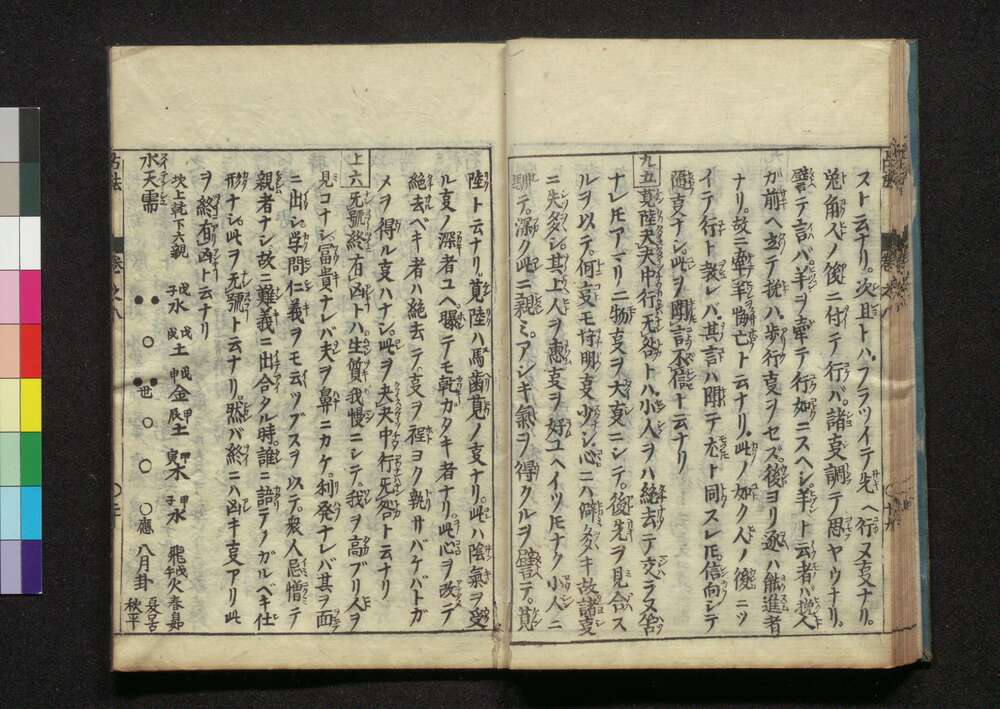 スト云ナリ。次且トハ、フラツイテ先ヘ行ヌ㕝ナリ。
兎角人ノ後ニ付テ行バ、諸㕝調テ思ヤウナリ。
譬テ言バ羊ヲ牽テ行如ニスヘシ。羊ト云者ハ挽人
ガ前ヘ立テ挽ハ歩行㕝ヲセズ。後ヨリ逐ハ能進者
ナリ。故ニ牽羊悔亡ト云ナリ。此ノ如ク人ノ後ニツ
イテ行ト教レバ、其言ハ聞テ尤ト同スレ𪜈信向シテ
随㕝ナシ。此ヲ聞言不信ト云ナリ
九五 莧陸夬夬中行无咎トハ、小人ヲハ絶去テ交ラヌ筈
ナレ𪜈アマリニ物㕝ヲ大㕝ニシテ。後先ヲ見合ス
ルヲ以テ。何㕝モ埒明㕝少シ。心ニハ僻多キ故諸㕝
ニ失多シ。其上人ヲ惠㕝ヲ好ユヘイツ𪜈ナク小人ニ
馴テ。深ク此ニ親ミ。アシキ氣ヲ得クルヲ譬テ。莧
陸ト云ナリ。莧陸ハ馬歯莧ノ㕝ナリ。此ハ陰氣ヲ受
ル㕝ノ深者ユヘ曝テモ乾カタキ者ナリ。此心ヲ改テ
絶去ベキ者ハ絶去テ。㕝ヲ程ヨク執サバケバトガ
メヲ得ル㕝ハナシ。此ヲ夬夬中行无咎ト云ナリ
上六 无號終有凶トハ生質我慢ニシテ。我ヲ高ブリ人ヲ
見コナシ。冨貴ナレバ夫ヲ鼻ニカケ。利発ナレバ其ヲ面
ニ出シ学問仁義ヲモ云ツブスヲ以テ。衆人忌憎テ
親者ナシ。故ニ難義ニ出合タル時。誰ニ語テノガルベキ仕
形ナシ。此ヲ无號ト云ナリ。然バ終ニハ凶キ㕝アリ。此
ヲ終有凶ト云ナリ
水天需
坎上乾下六親
戊子水 戊戌土 戊申金 甲辰土 甲寅木 甲子水
世
應 八月卦
飛戊午火
春易
夏呂
秋平